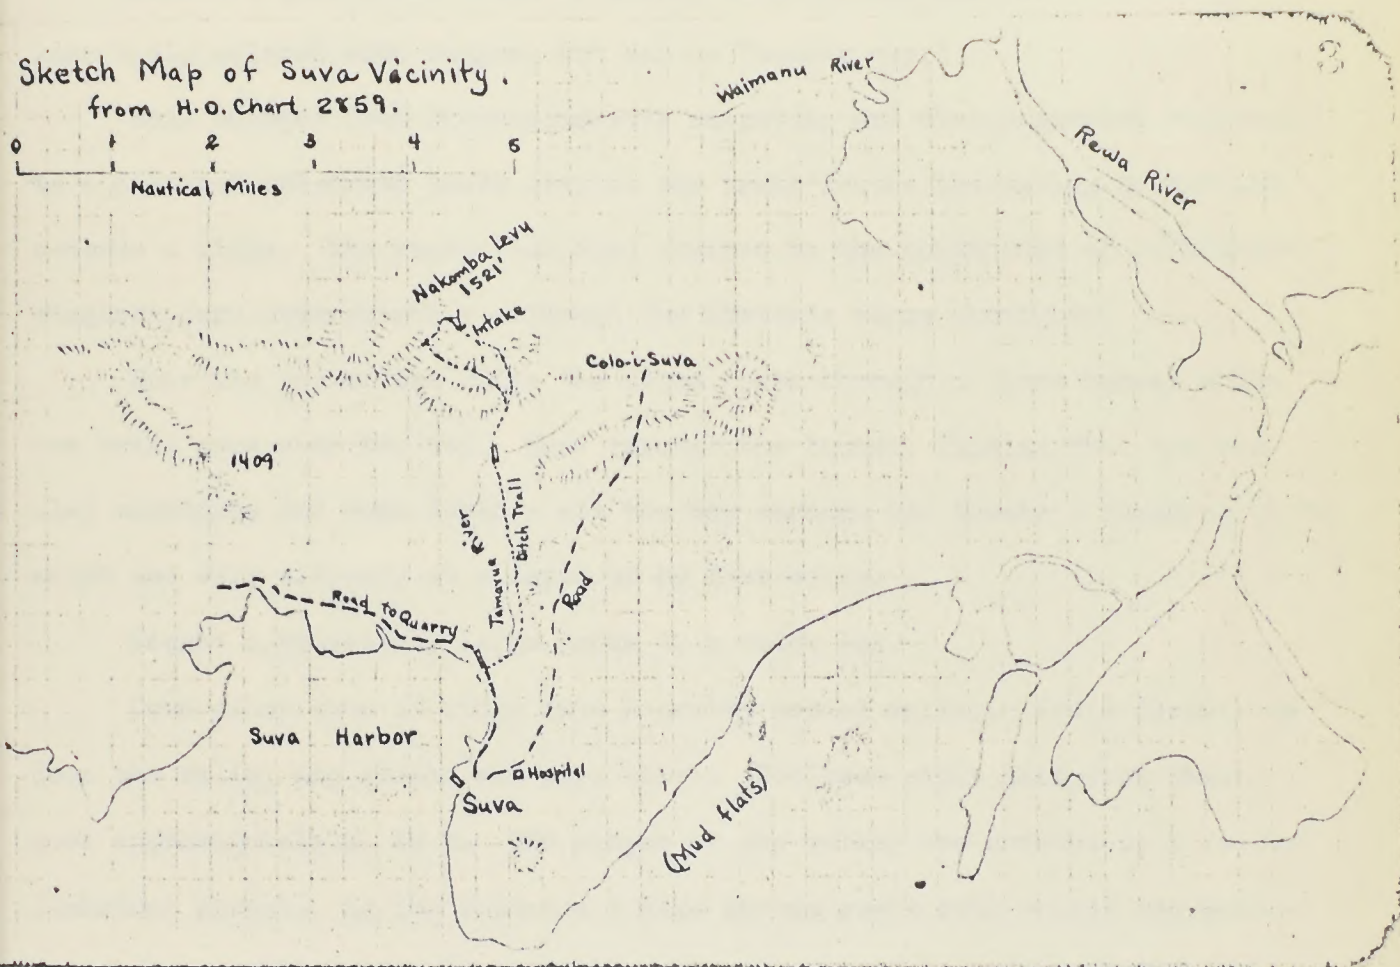 Sketch Map of Suva Vicinity.
from H.O. Chart 2859.
0 1 2 3 4 5
Nautical Miles
Waimanu River
Rewa River
Nakomba Levu
1521'
Intake
Colo-i-Suva
1409'
Tamavue River
Ditch Trail
Road
Road to Quarry
Suva Harbor
Hospital
Suva
(Mud flats)